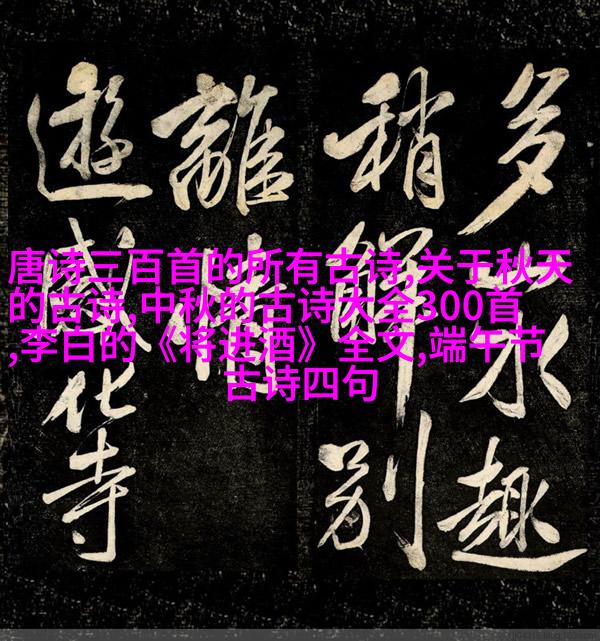 唐诗三百首的所有古诗,关于秋天
的古诗,中秋的古诗大全300首
,李白的《将进酒》全文,端午节
古诗四句
多水趣
稍解别
離情
遊感化寺